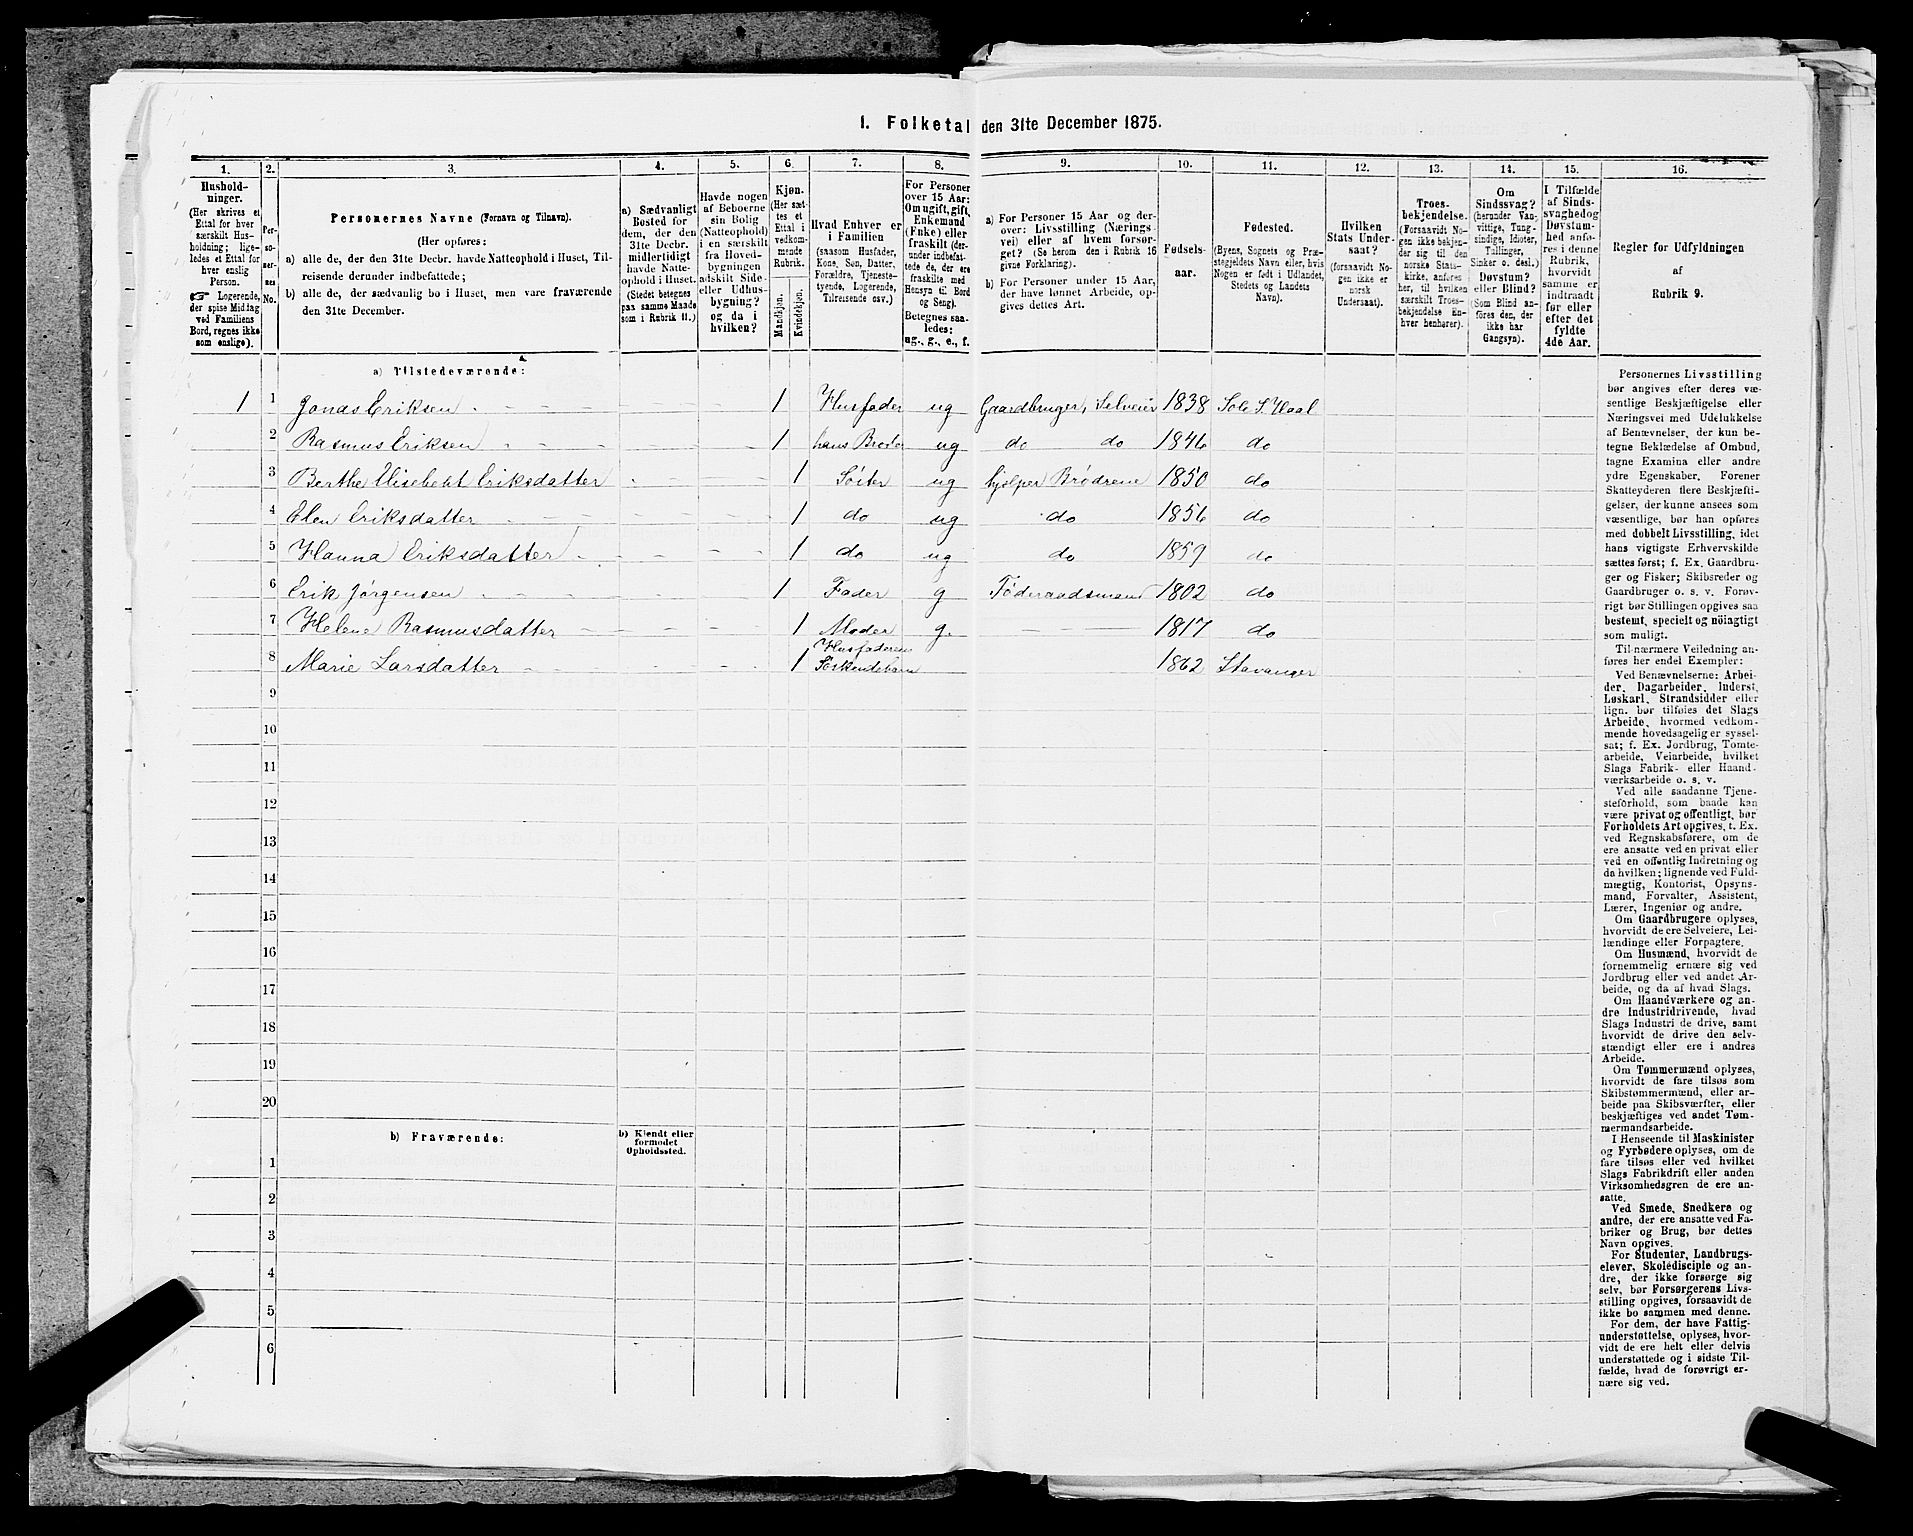 1. Folketal den 31te December 1875.
1. 2. 3. 4. 5. 6. 7. 8. 9. 10. 11. 12. 13. 14. 15. 16.
Hushold-
ninger.
(Her skrives et
Ettal for hver
særskilt Hus-
holdning; lige-
ledes et Ettal
for hver
enslig
Person.
☞ Logerende,
der spise Middag
ved Familiens
Bord, regnes ikke
som enslige).
Per-
so-
ner-
nes
No.
Personernes Navne (Fornavn og Tilnavn).
(Her opføres:
a) alle de, der den 31te Decbr. havde Natteophold i Huset, Til-
reisende derunder indbefattede;
b) alle de, der sædvanlig bo i Huset, men vare fraværende
den 31te December.
a) Sædvanligt
Bosted for
dem, der den
31te Decbr.
midlertidigt
havde Natte-
ophold i Huset.
(Stedet betegnes
paa samme Maade
som i Rubrik 11.)
Havde nogen
af Beboerne
sin Bolig
(Natteophold)
i en særskilt
fra Hoved-
bygningen
adskilt Side-
eller Udhus-
bygning?
og da i
hvilken?
Kjøn.
(Her sæt-
tes et
Ettal i
vedkom-
mende
Rubrik.
Mandkjøn.
Kvindekjøn.
Hvad Enhver er
i Familien
(saasom Husfader,
Kone, Søn, Datter,
Forældre, Tjeneste-
tyende, Logerende,
Tilreisende osv.)
For Personer
over 15 Aar:
Om ugift, gift,
Enkemand
(Enke) eller
fraskilt (der-
under indbefat-
tede de, der ere
fraskilte med
Hensyn til Bord
og Seng).
Betegnes saa-
ledes:
ug., g., e., f.
a) For Personer 15 Aar og der-
over: Livsstilling (Nærings-
vei) eller af hvem forsør-
get? (Se herom den i Rubrik 16
givne Forklaring).
b) For Personer under 15 Aar,
der have lønnet Arbeide, op-
gives dettes Art.
Fødsels-
aar.
Fødested.
(Byens, Sognets og Præ-
stegjeldets Navn eller, hvis
Nogen er født i Udlandet,
Stedets og Landets
Navn).
Hvilken
Stats Under-
saat?
(forsaavidt No-
gen ikke er
norsk
Undersaat).
Troes-
bekjendelse.
(Forsaavidt No-
gen ikke bekjen-
der sig til den
norske Stats-
kirke, anføres
her, til hvilken
særskilt Troes-
bekjendelse En-
hver henhører).
Om
Sindssvag?
(herunder Van-
vittige, Tung-
sindige, Idioter,
Tullinger,
Sinker o. desl.)
Døvstum?
eller Blind?
(Som Blind an-
føres den, der
ikke har
Gangsyn).
I Tilfælde
af Sinds-
svaghed og
Døvstum-
hed anfø-
res i denne
Rubrik,
hvorvidt
samme er
indtraadt
før eller
efter det
fyldte
4de Aar.
Regler for Udfyldningen
af
Rubrik 9.
a) Tilstedeværende:
1 1 Jonas Eriksen 1 Husfader ug Gaardbruger, Selveier 1838 Sole S. Haal
2 Rasmus Eriksen 1 hans Broder ug do do 1846 do
3 Berthe Elisebeht Eriksdatter 1 Søster ug hjelper Brødrene 1850 do
4 Elen Eriksdatter 1 do ug do 1856 do
5 Hanna Eriksdatter 1 do ug do 1859 do
6 Erik Jørgensen 1 Fader g Føderaadsmand 1802 do
7 Helene Rasmusdatter 1 Moder g. 1817 do
8 Marie Larsdatter 1 Husfaderens
Søskendebarn 1862 Stavanger
9
10
11
12
13
14
15
16
17
18
19
20
b) Fraværende:
b) Kjendt eller
formodet
Opholdssted.
1
2
3
4
5
6
Personernes Livsstilling
bør angives efter deres væ-
sentlige Beskjæftigelse eller
Næringsvei med Udelukkelse
af Benævnelser, der kun be-
tegne Beklædelse af Ombud,
tagne Examina eller andre
ydre Egenskaber. Forener
Skatteyderen flere Beskjæfti-
gelser, der kunne ansees som
væsentlige, bør han opføres
med dobbelt Livsstilling, idet
hans vigtigste Erhvervskilde
sættes først; f. Ex. Gaardbru-
ger og Fisker; Skibsreder og
Gaardbruger o. s. v. Forøv-
rigt bør Stillingen opgives saa
bestemt, specielt og nöiagtigt
som muligt.
Til nærmere Veiledning an-
føres her endel Exempler:
Ved Benævnelserne: Arbei-
der, Dagarbeider, Inderst,
Løskarl, Strandsidder eller
lign. bør tilføies det Slags
Arbeide, hvormed vedkom-
mende hovedsagelig er syssel-
sat; f. Ex. Jordbrug, Tomte-
arbeide, Veiarbeide, hvilket
Slags Fabrik- eller Haand-
værksarbeide o. s. v.
Ved alle saadanne Tjene-
steforhold, som baade kan
være privat og offentligt, bør
Forholdets Art opgives, t. Ex.
ved Regnskabsførere, om de
ere ansatte ved en privat eller
ved en offentlig Indretning og
da hvilken; lignende ved Fuld-
mægtig, Kontorist, Opsyns-
mand, Forvalter, Assistent,
Lærer, Ingeniør og andre.
Om Gaardbrugere oplyses,
hvorvidt de ere Selveiere, Lei-
lændinge eller Forpagtere.
Om Husmænd, hvorvidt de
fornemmelig ernære sig ved
Jordbrug eller ved andet Ar-
beide, og da af hvad Slags.
Om Haandværkere og an-
dre Industridrivende, hvad
Slags Industri de drive, samt
hvorvidt de drive den selv-
stændigt eller ere i andres
Arbeide.
Om Tømmermænd oplyses,
hvorvidt de fare tilsøs som
Skibstømmermænd, eller ar-
beide paa Skibsværfter, eller
beskjæftiges ved andet Tøm-
mermandsarbeide.
I Henseende til Maskinister
og Fyrbødere oplyses, om de
fare tilsøs eller ved hvilket
Slags Fabrikdrift eller anden
Virksomhedsgren de ere an-
satte.
Ved Smede, Snedkere og
andre, der ere ansatte ved Fa-
briker og Brug, bør dettes
Navn opgives.
For Studenter, Landbrugs-
elever, Skoledisciple og an-
dre, der ikke forsørge sig
selv, bør Forsørgerens Livs-
stilling opgives, forsaavidt de
ikke bo sammen med denne.
For dem, der have Fattig-
understøttelse, oplyses, hvor-
vidt de ere helt eller delvis
understøttede og i sidste Til-
fælde, hvad de forøvrigt er-
nære sig ved.